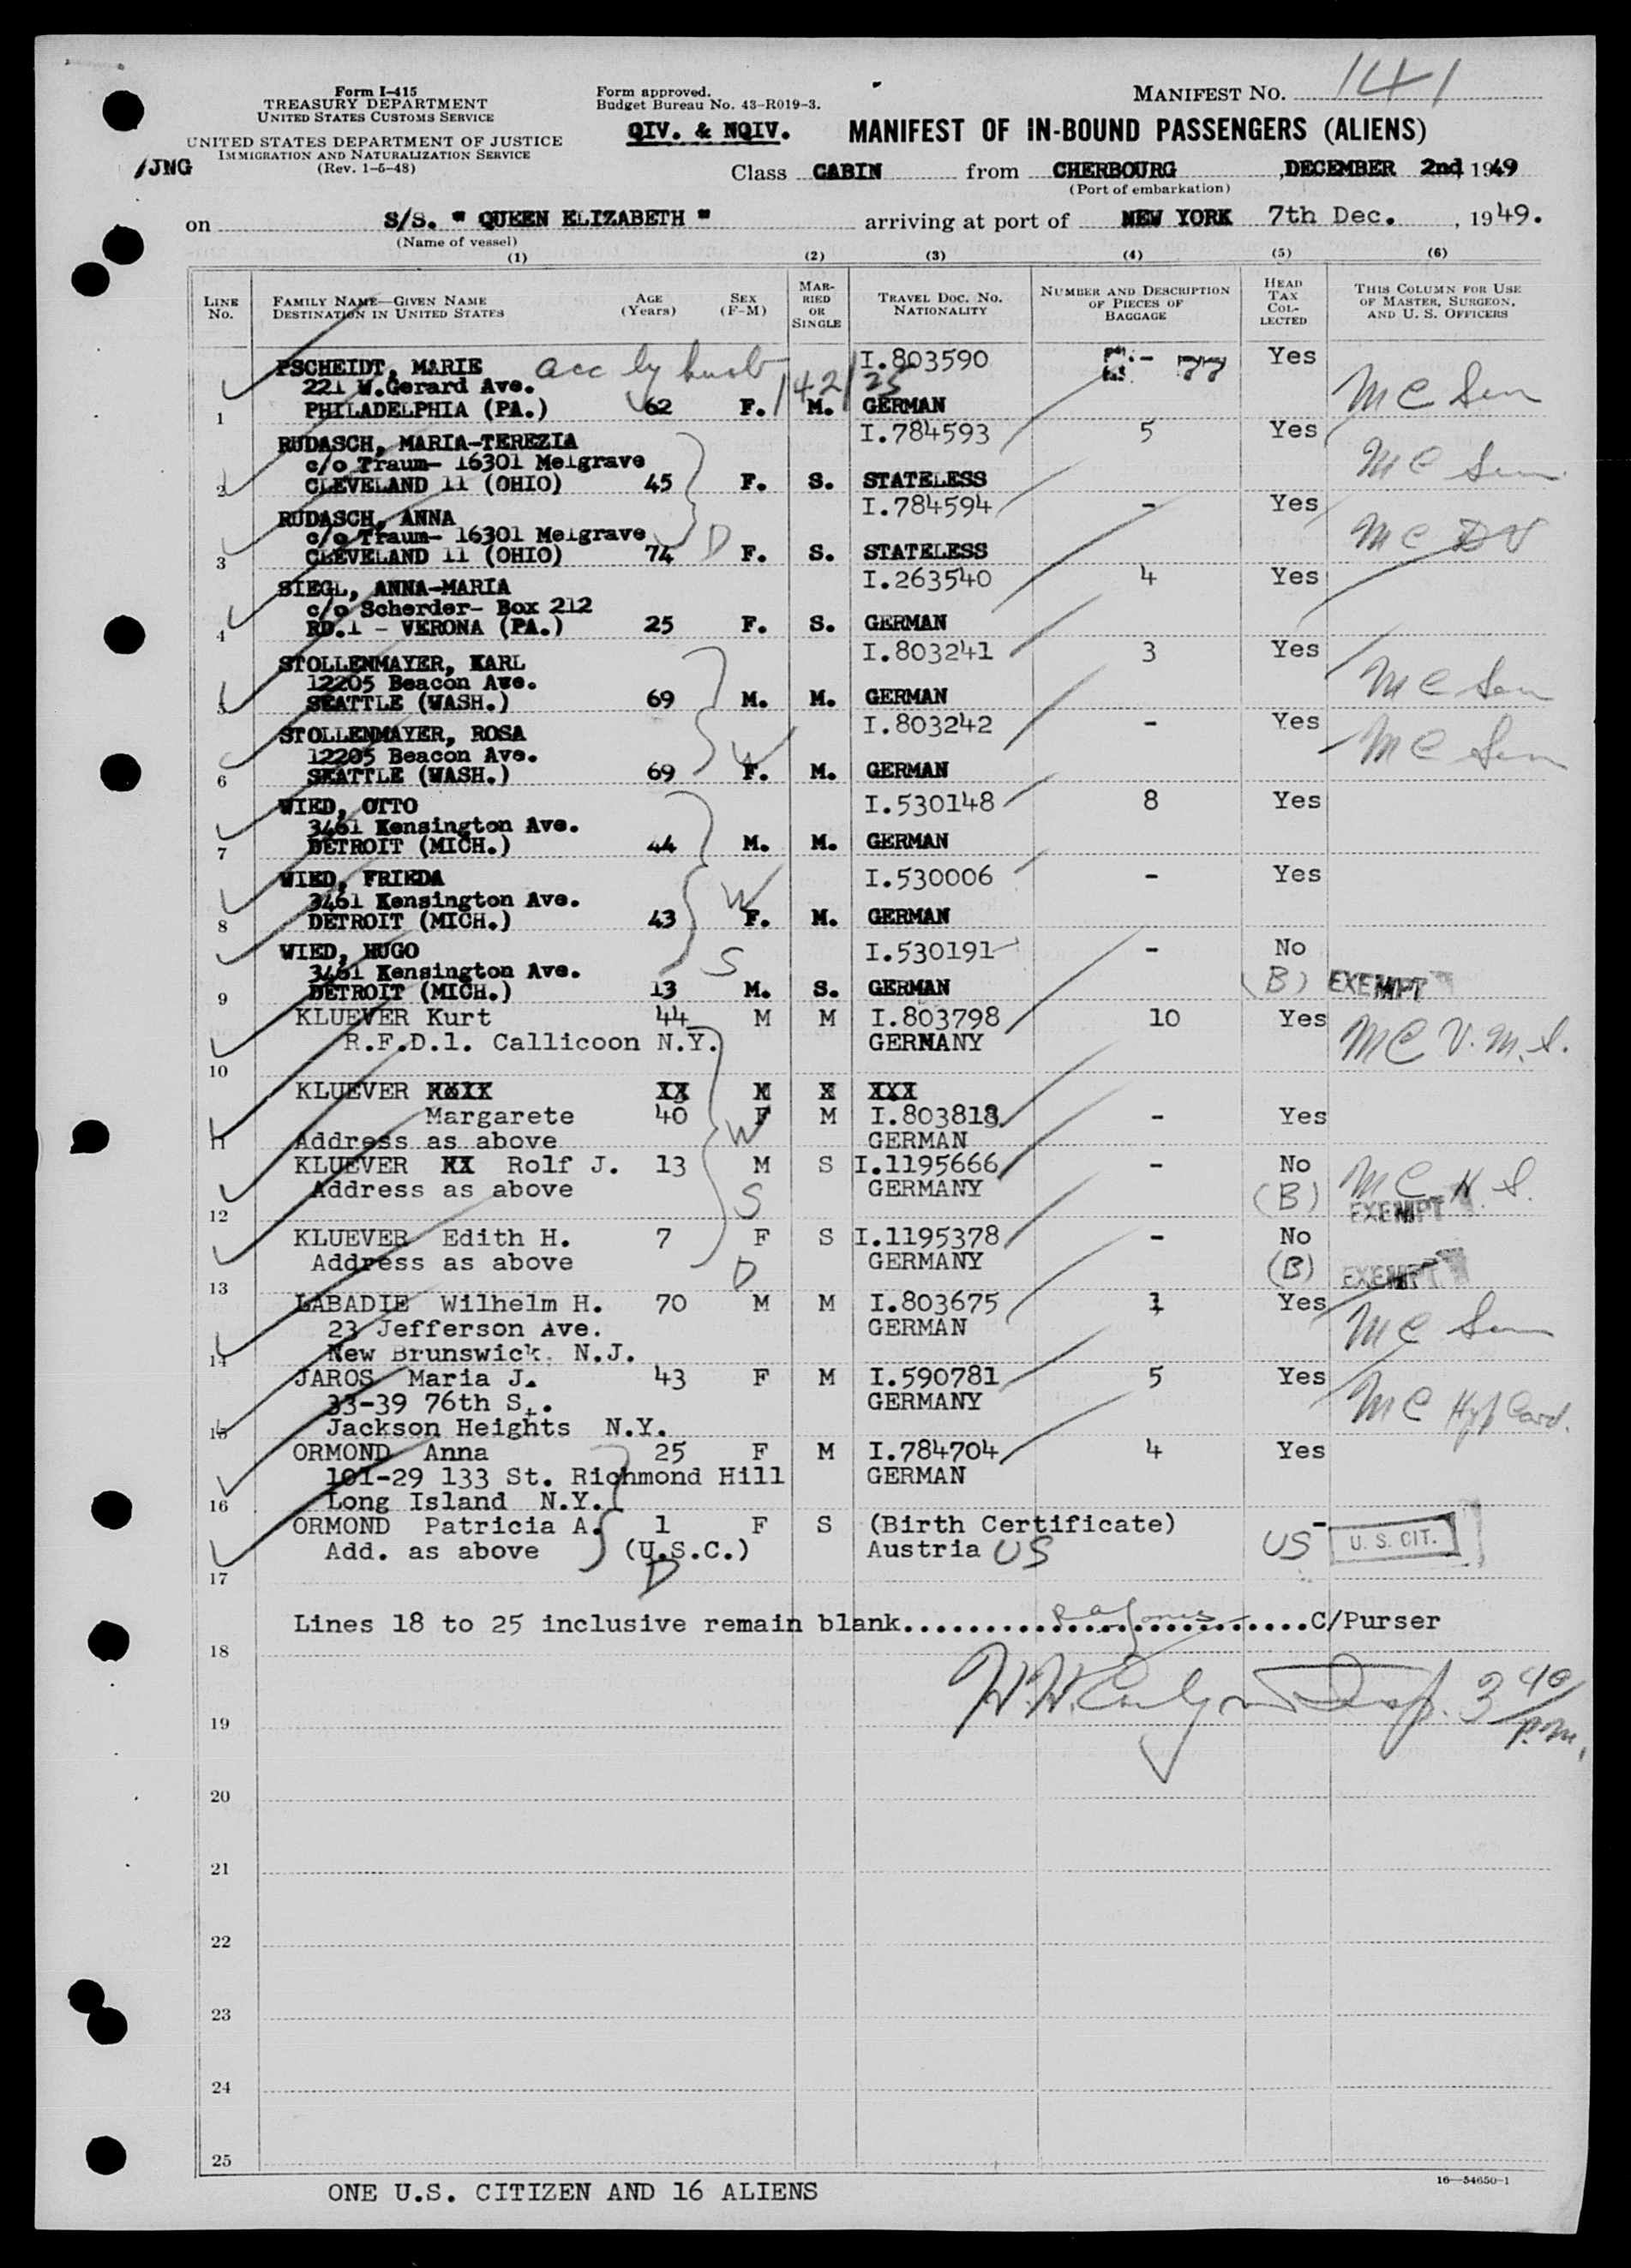 MANIFEST NO. 141
Form I-415
TREASURY DEPARTMENT
UNITED STATES CUSTOMS SERVICE
UNITED STATES DEPARTMENT OF JUSTICE
IMMIGRATION AND NATURALIZATION SERVICE
(Rev. 1-5-48)
/JNG
Form approved.
Budget Bureau No. 43-R019-3.
QIV. & NQIV. MANIFEST OF IN-BOUND PASSENGERS (ALIENS)
Class CABIN from CHERBOURG, DECEMBER 2nd 1949
(Port of embarkation)
on S/S. " QUEEN ELIZABETH " arriving at port of NEW YORK 7th Dec. , 1949.
(Name of vessel)
(1) (2) (3) (4) (5) (6)
LINE NO. FAMILY NAME—GIVEN NAME DESTINATION IN UNITED STATES AGE (YEARS) SEX (F-M) MARRIED OR SINGLE TRAVEL DOC. NO. NATIONALITY NUMBER AND DESCRIPTION OF PIECES OF BAGGAGE HEAD TAX COLLECTED THIS COLUMN FOR USE OF MASTER, SURGEON, AND U. S. OFFICERS
PSCHEIDT, MARIE acc by husb I.803590 Yes
221 W.Gerard Ave. 142/25 MC Sen
1 PHILADELPHIA (PA.) 62 F. M. GERMAN
RUDASCH, MARIA-TEREZIA I.784593 5 Yes
c/o Traum- 16301 Melgrave MC Sen
2 CLEVELAND 11 (OHIO) 45 F. S. STATELESS
RUDASCH, ANNA I.784594 - Yes
c/o Traum- 16301 Melgrave MC DV
3 CLEVELAND 11 (OHIO) 74 D F. S. STATELESS
SIEGL, ANNA-MARIA I.263540 4 Yes
c/o Scherder- Box 212
4 RD.1 - VERONA (PA.) 25 F. S. GERMAN
STOLLENMAYER, KARL I.803241 3 Yes
12205 Beacon Ave. MC Sen
5 SEATTLE (WASH.) 69 M. M. GERMAN
STOLLENMAYER, ROSA I.803242 - Yes
12205 Beacon Ave. W MC Sen
6 SEATTLE (WASH.) 69 F. M. GERMAN
WIED, OTTO I.530148 8 Yes
3461 Kensington Ave.
7 DETROIT (MICH.) 44 M. M. GERMAN
WIED, FRIEDA I.530006 - Yes
3461 Kensington Ave. W
8 DETROIT (MICH.) 43 F. M. GERMAN
WIED, HUGO I.530191 - No
3461 Kensington Ave. S (B) EXEMPT
9 DETROIT (MICH.) 13 M. S. GERMAN
KLUEVER Kurt 44 M M I.803798 10 Yes
R.F.D.1. Callicoon N.Y. GERMANY MC V.M.S.
10
KLUEVER XXXX XX M X XXX
Margarete 40 F M I.803818 - Yes
11 Address as above W GERMAN
KLUEVER XX Rolf J. 13 M S I.1195666 - No MC H S.
Address as above S GERMANY (B) EXEMPT
12
KLUEVER Edith H. 7 F S I.1195378 - No
Address as above D GERMANY (B) EXEMPT
13
LABADIE Wilhelm H. 70 M M I.803675 1 Yes
23 Jefferson Ave. GERMAN MC Sen
14 New Brunswick. N.J.
JAROS Maria J. 43 F M I.590781 5 Yes
33-39 76th St. GERMANY MC Hyp Card.
15 Jackson Heights N.Y.
ORMOND Anna 25 F M I.784704 4 Yes
101-29 133 St. Richmond Hill GERMAN
16 Long Island N.Y.
ORMOND Patricia A. 1 F S (Birth Certificate) -
Add. as above (U.S.C.) Austria US US U. S. CIT.
17 D
Lines 18 to 25 inclusive remain blank..........................C/Purser
18
Insp. 3 40/p.m.
19
20
21
22
23
24
25
ONE U.S. CITIZEN AND 16 ALIENS
16—54650-1